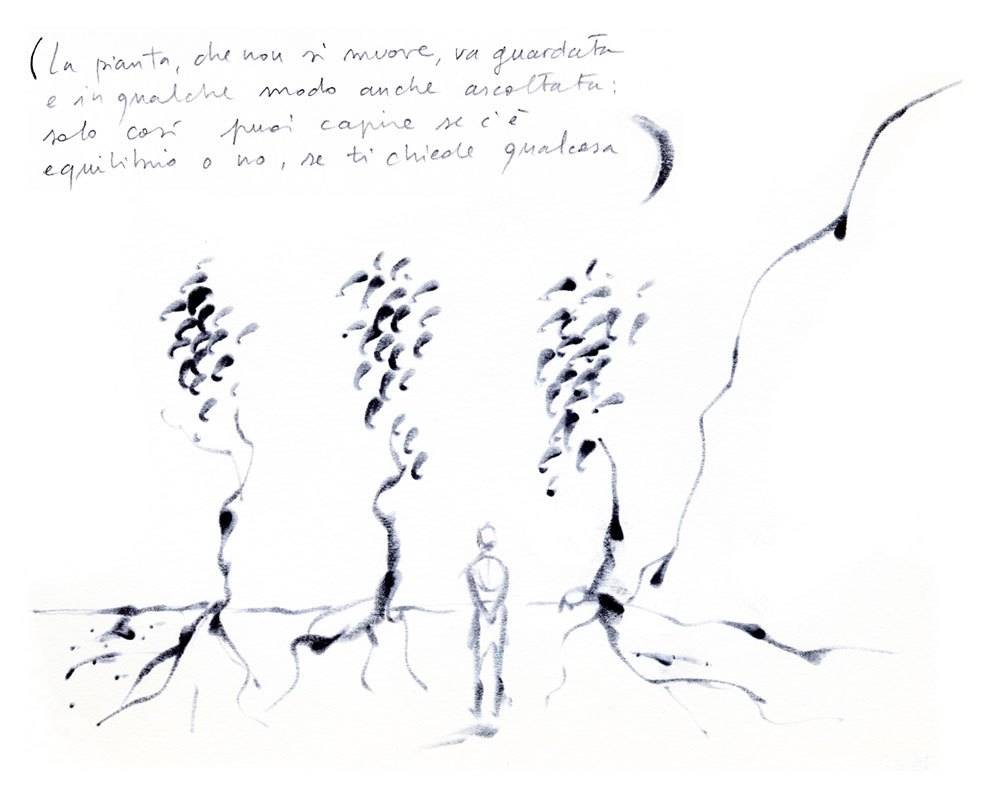 (La pianta, che non si muove, va guardata
e in qualche modo anche ascoltata:
solo così puoi capire se c'è
equilibrio o no, se ti chiede qualcosa